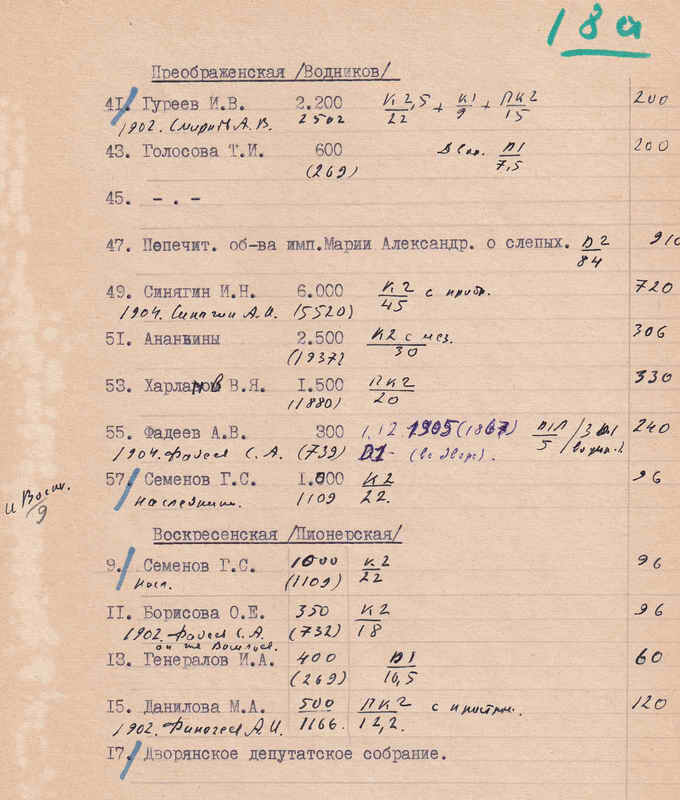 18а
Преображенская /Водников/
41. Гуреев И.В. 2.200 К 2,5/22 + К1/9 + ПК2/15 200
1902. А.В. 2502
43. Голосова Т.И. 600 Д1/7,5 200
(269)
45. - . -
47. Попечит. об-ва имп.Марии Александр. о слепых. Д2/84 910
49. Синягин И.Н. 6.000 К2/45 с 720
1904. Синягин А.И. (5520)
51. Ананьины 2.500 К2 с мез./30 306
(1937)
53. Харламов В.Я. 1.500 ПК2/20 330
(1880)
55. Фадеев А.В. 300 1.12.1905 (1867) Д1Л/5 240
1904. Фадеев С.А. (739) Д1 - (во дворе).
57. Семенов Г.С. 1.000 К2/22. 96
наследники. 1109
и Воск./9
Воскресенская /Пионерская/
9. Семенов Г.С. 1000 К2/22 96
насл. (1109)
11. Борисова О.Е. 350 К2/18 96
1902. Фадеев С.А. (732)
он же
13. Генералов И.А. 400 Д1/10,5 60
(269)
15. Данилова М.А. 500 ПК2/12,2. с 120
1902. А.И. 1166.
17. Дворянское депутатское собрание.